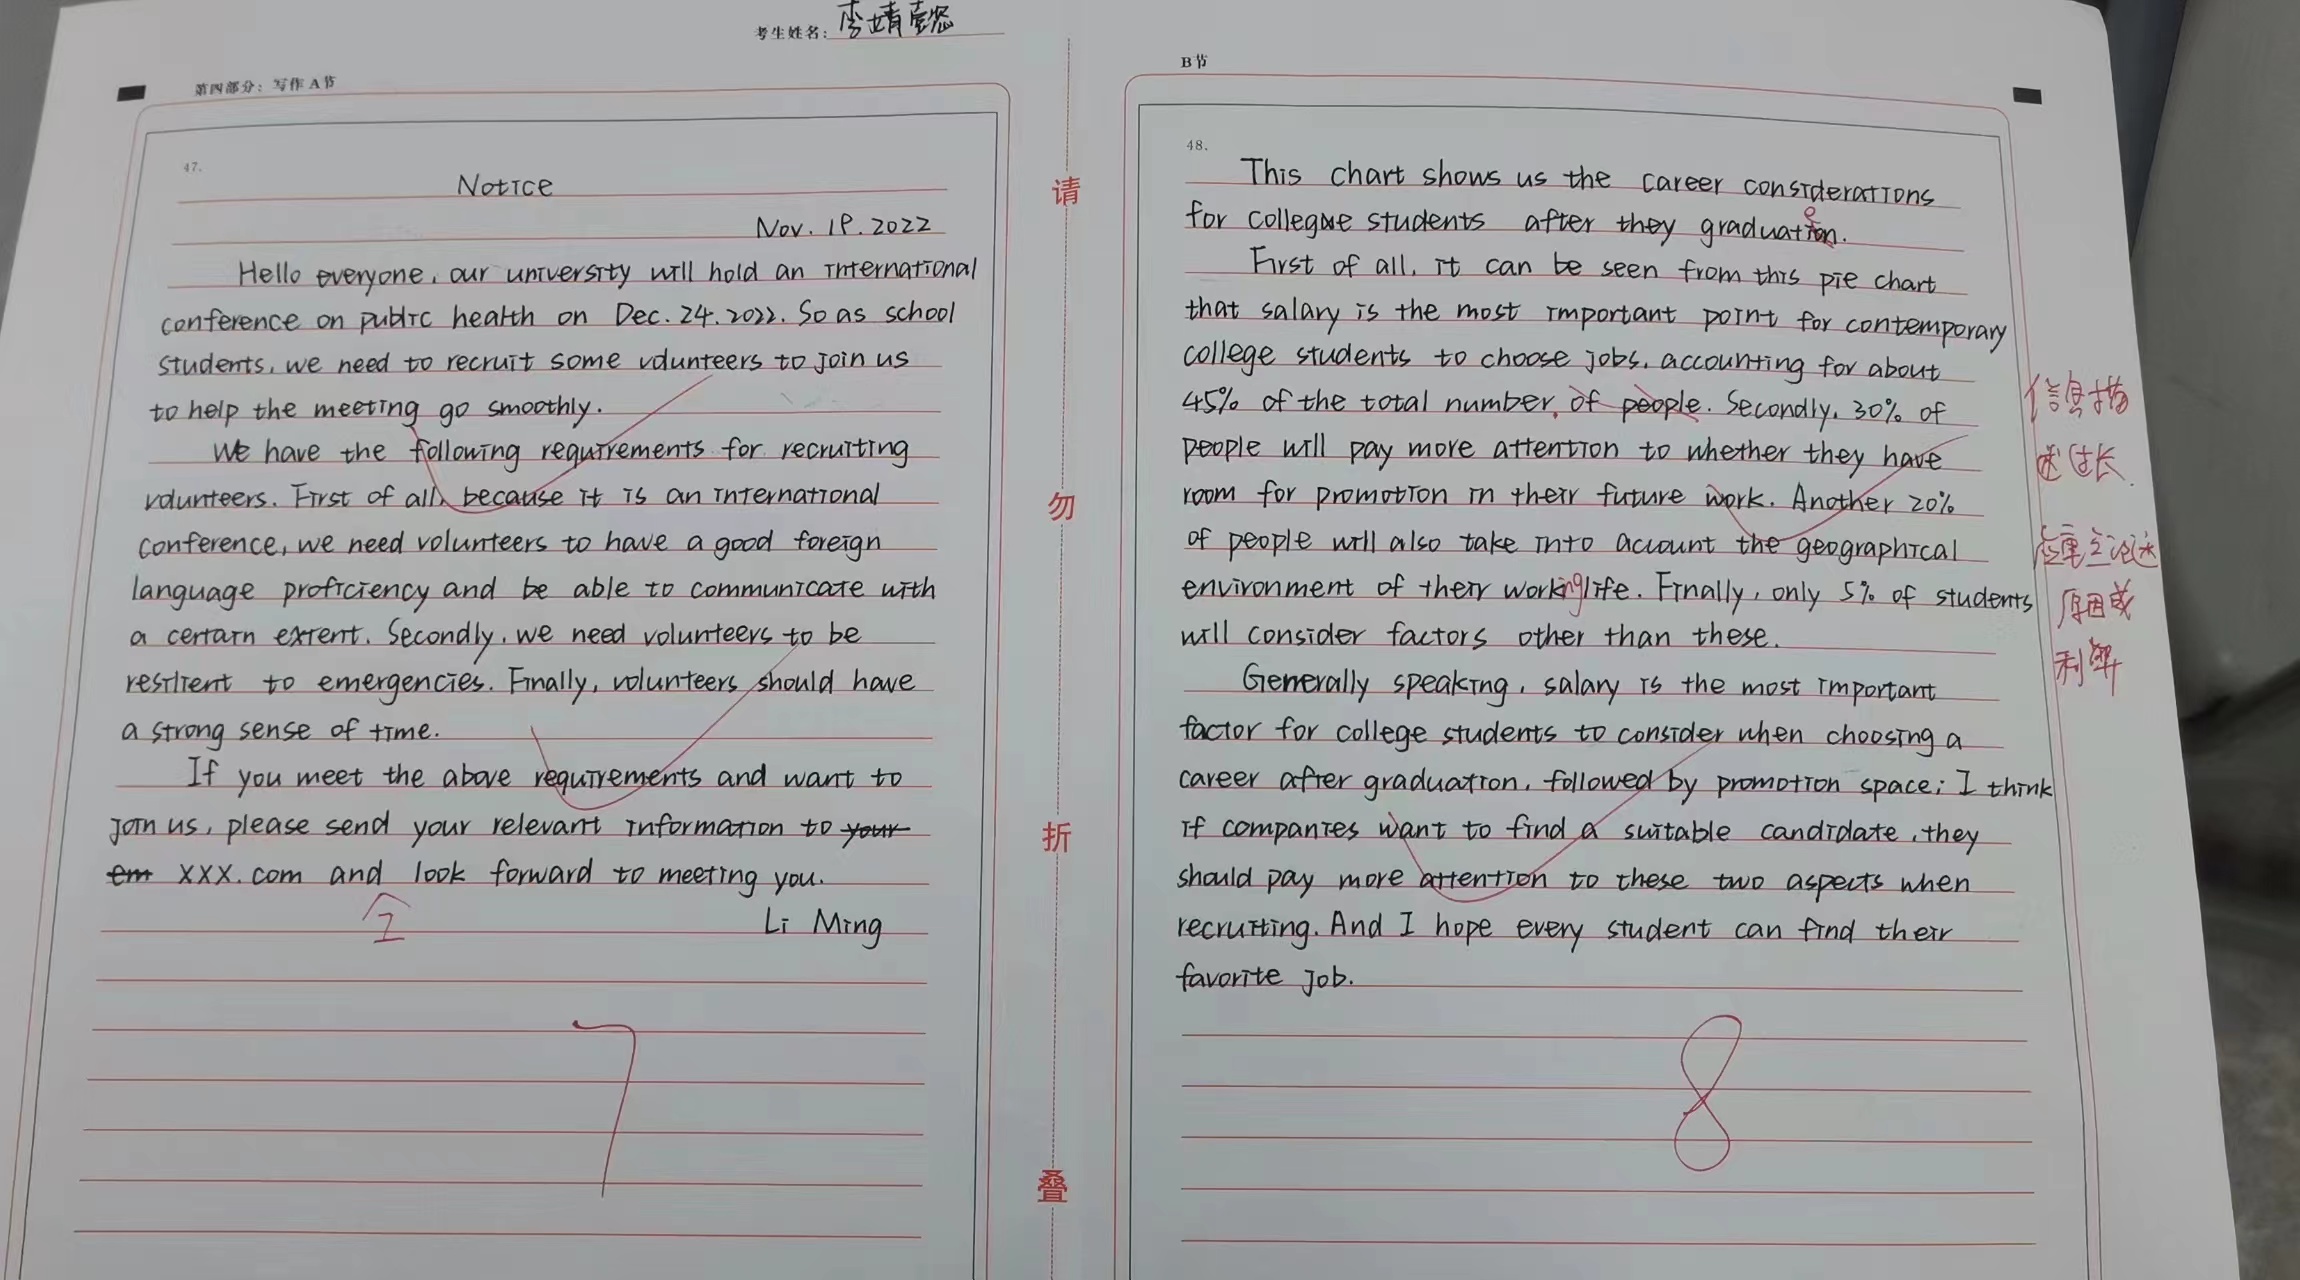 考生姓名：李靖
第四部分：写作 A 节
47.
Notice
Nov. 19. 2022
Hello everyone, our university will hold an international
conference on public health on Dec. 24. 2022. So as school
students, we need to recruit some volunteers to join us
to help the meeting go smoothly.
We have the following requirements for recruiting
volunteers. First of all, because it is an international
conference, we need volunteers to have a good foreign
language proficiency and be able to communicate with
a certain extent. Secondly, we need volunteers to be
resilient to emergencies. Finally, volunteers should have
a strong sense of time.
If you meet the above requirements and want to
join us, please send your relevant information to your
em XXX.com and look forward to meeting you.
I
Li Ming
7
请
勿
折
叠
B 节
48.
This chart shows us the career considerations
for college students after they graduation.
e
First of all, it can be seen from this pie chart
that salary is the most important point for contemporary
college students to choose jobs, accounting for about
45% of the total number of people. Secondly, 30% of
people will pay more attention to whether they have
room for promotion in their future work. Another 20%
of people will also take into account the geographical
environment of their working life. Finally, only 5% of students
will consider factors other than these.
Generally speaking, salary is the most important
factor for college students to consider when choosing a
career after graduation, followed by promotion space; I think
if companies want to find a suitable candidate, they
should pay more attention to these two aspects when
recruiting. And I hope every student can find their
favorite job.
8
信息描
述过长.
应重点论述
原因或
利弊